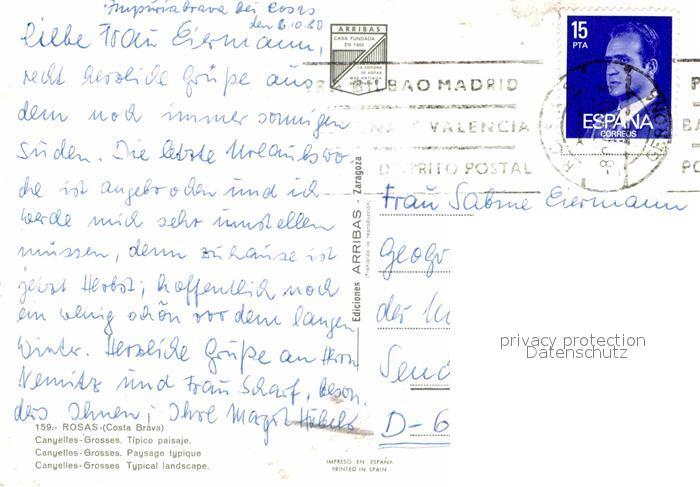 Impuriabrava bei Rosas
den 6.10.80
Liebe Frau Eiermann,
recht herzliche Grüße aus
dem noch immer sonnigen
Süden. Die letzte Urlaubswo-
che ist angebrochen und ich
werde mich sehr umstellen
müssen, denn zuhause ist
jetzt Herbst; hoffentlich noch
ein wenig schön vor dem langen
Winter. Herzliche Grüße an Herrn
Nemitz und Frau Scharf, beson-
ders Ihnen, Ihre Margit
159.- ROSAS (Costa Brava)
Canyelles-Grosses. Típico paisaje.
Canyelles-Grosses. Paysage typique
Canyelles-Grosses Typical landscape.
ARRIBAS
CASA FUNDADA
Ediciones ARRIBAS - Zaragoza
(Prohibida la reproducción)
IMPRESO EN ESPAÑA
PRINTED IN SPAIN
15
PTA
ESPAÑA
CORREOS
BILBAO MADRID
VALENCIA
DISTRITO POSTAL
Frau Sabine Eiermann
Geogr
der
Senc
D-6
privacy protection
Datenschutz